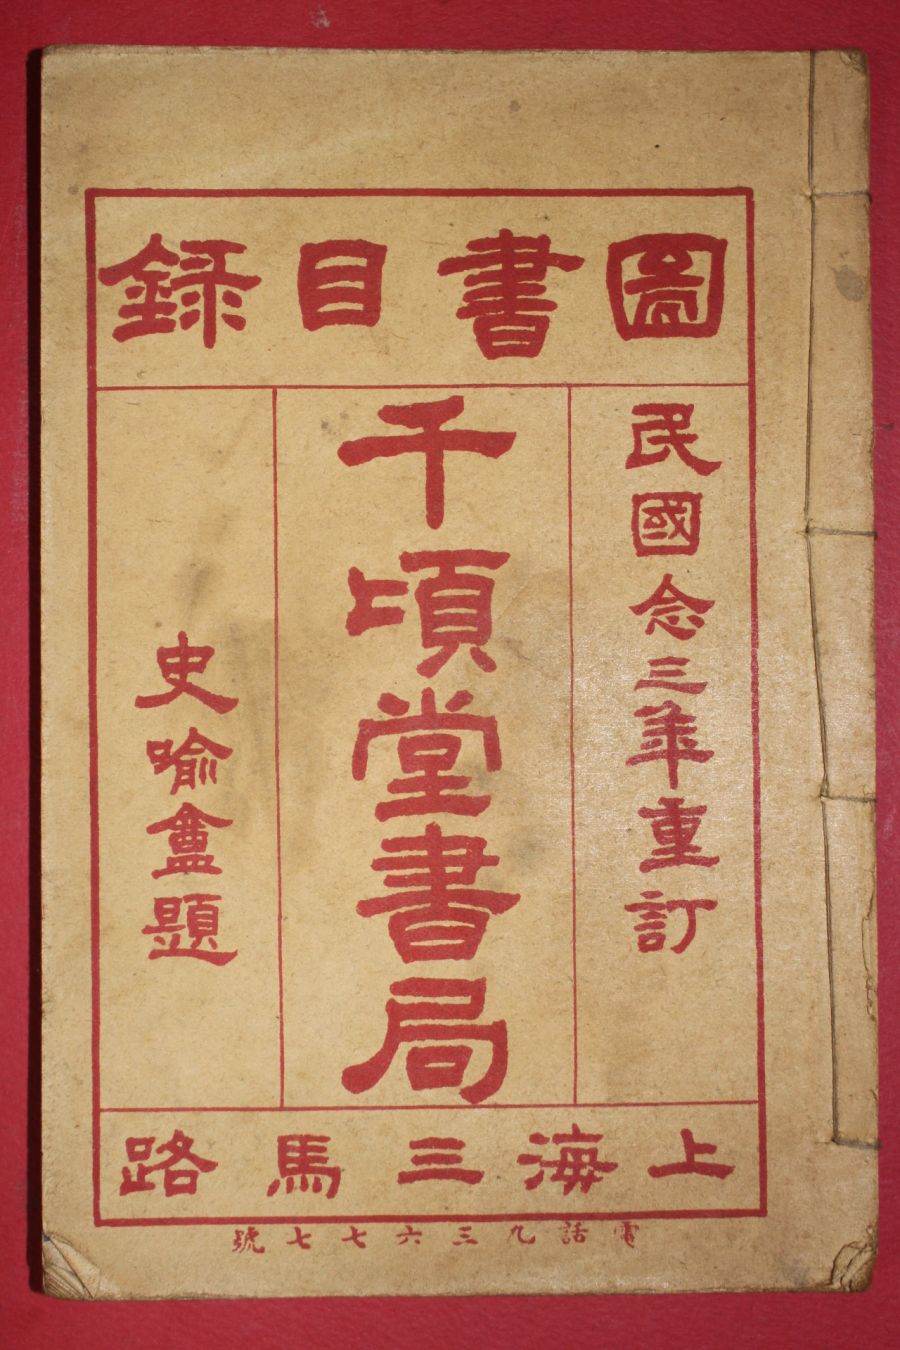 圖書目録
民國念三年重訂
千頃堂書局
史喻盦題
上海三馬路
電話九三六七七號